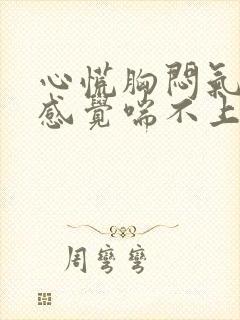 心慌胸悶氣
感覺喘不上
周彎彎